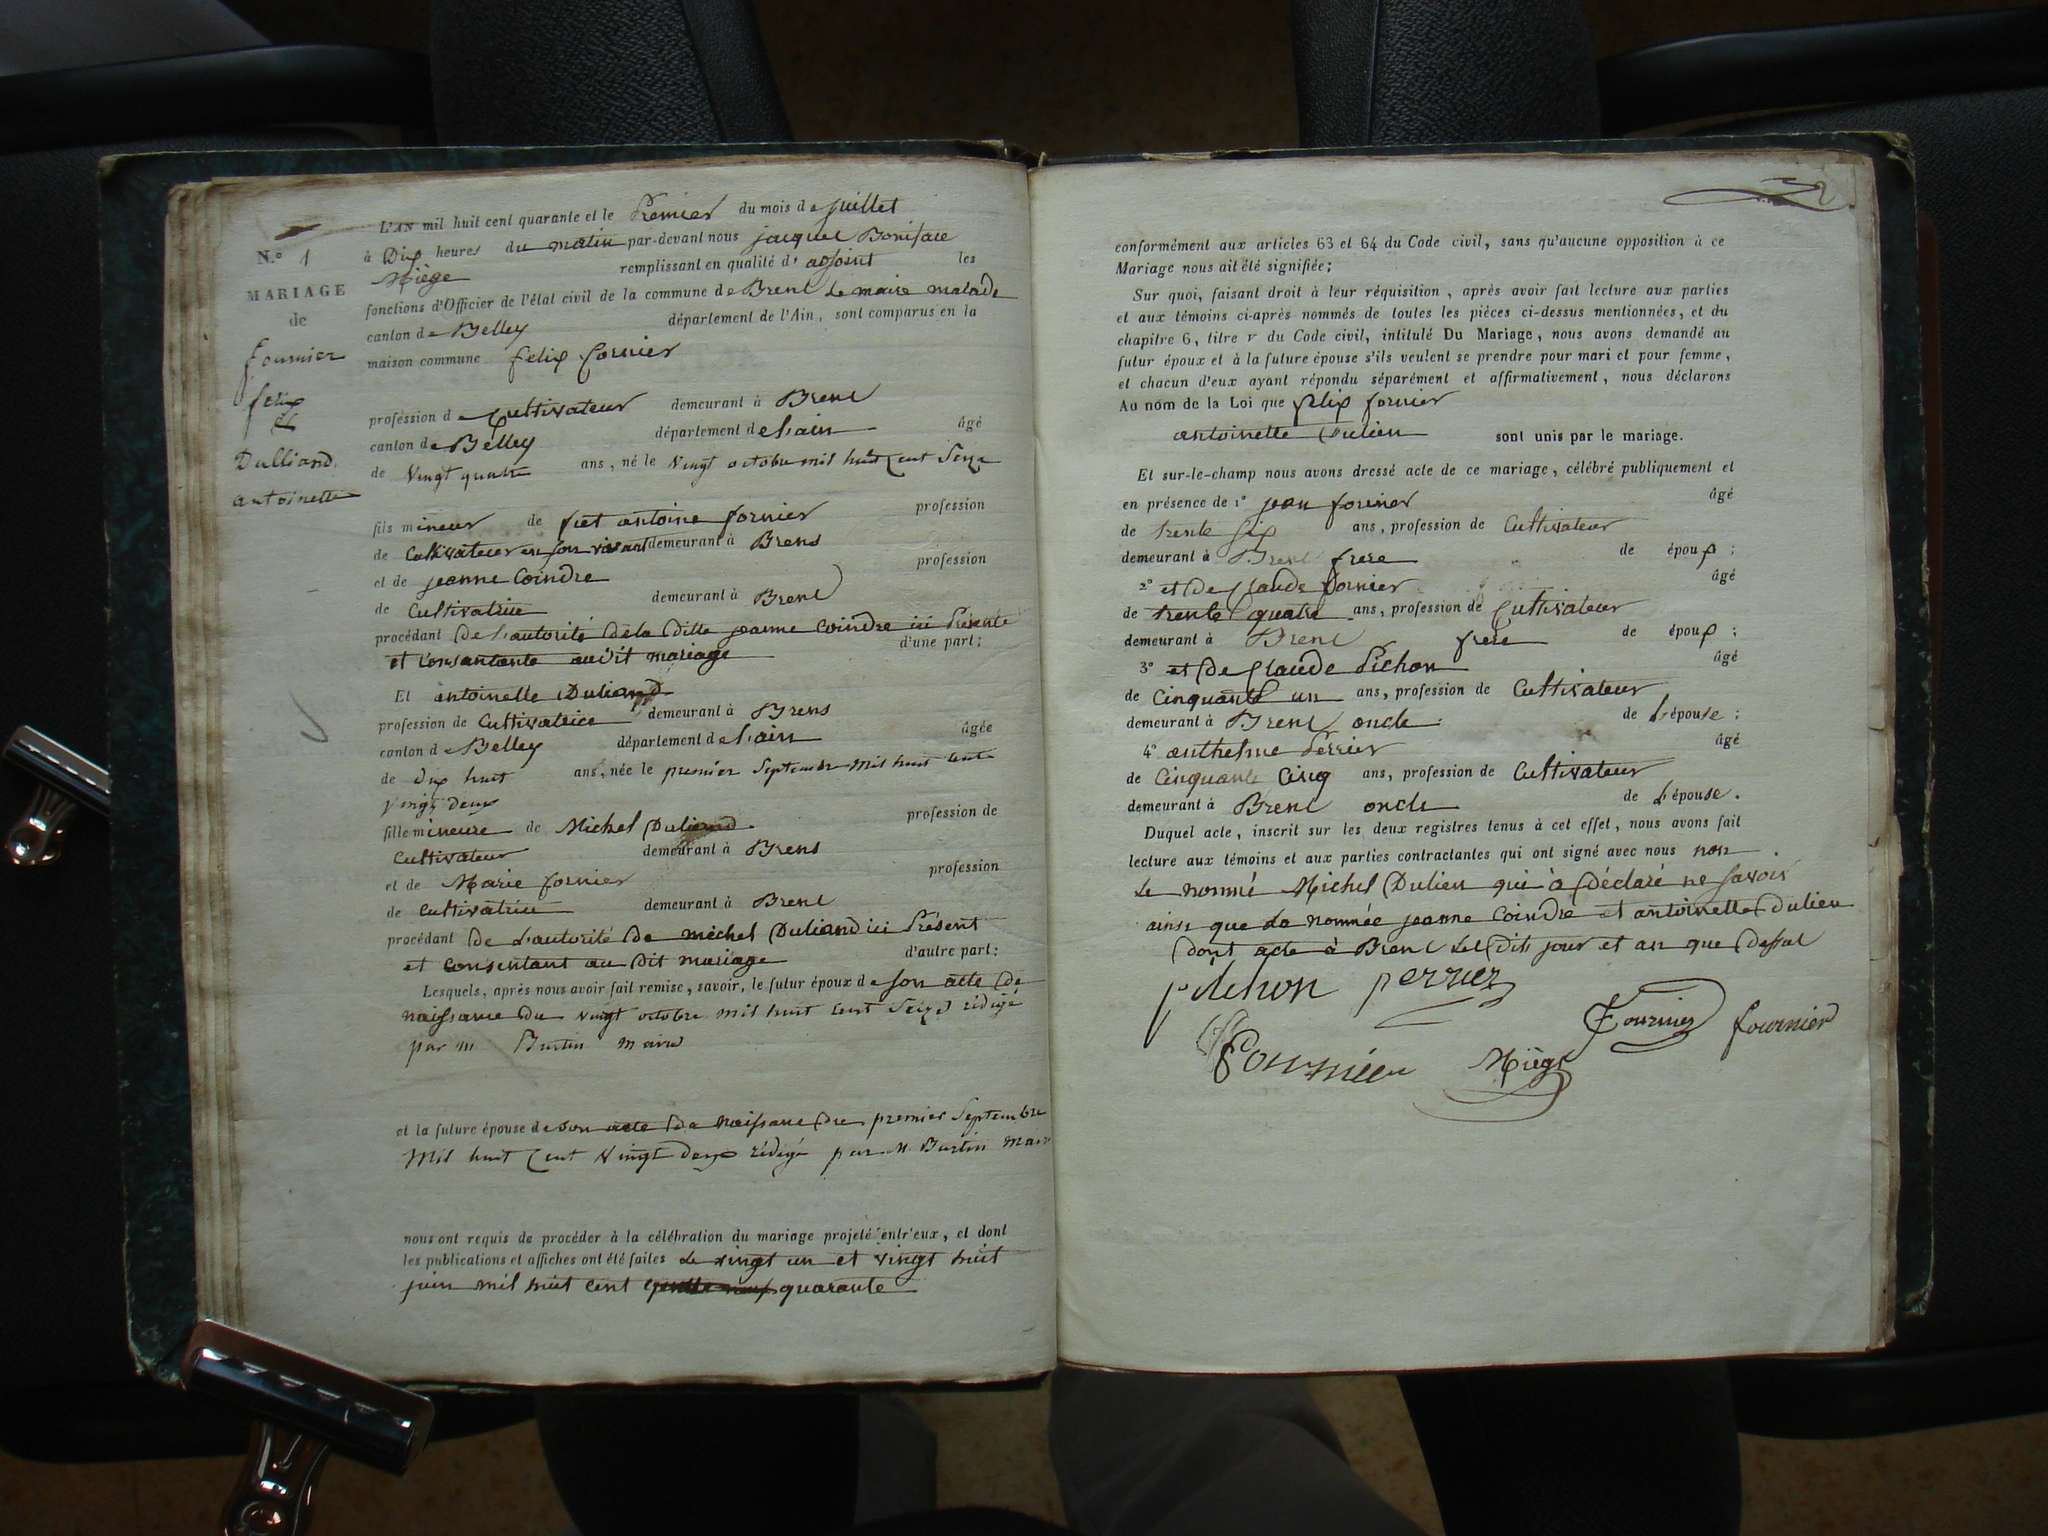 N.º 1
MARIAGE
de
fournier
felix
et
Dulliand
antoinette
L'AN mil huit cent quarante et le Premier du mois de juillet
à Dix heures du matin par-devant nous jacques Boniface
Miège remplissant en qualité d'adjoint les
fonctions d'Officier de l'état civil de la commune de Brens le maire malade
canton de Belley département de l'Ain, sont comparus en la
maison commune felix fornier
profession de Cultivateur demeurant à Brens
canton de Belley département de Lain âgé
de vingt quatre ans, né le vingt octobre mil huit cent seize
fils mineur de feet antoine fornier profession
de Cultivateur en son vivant demeurant à Brens
et de jeanne Coindre profession
de Cultivatrice demeurant à Brens
procédant de l'autorité de la ditte jeanne Coindre ici Présente
et consantante audit mariage d'une part;
Et antoinette Duliand
profession de Cultivatrice demeurant à Brens
canton de Belley département de Lain âgée
de dix huit ans, née le premier Septembre mil huit cent
vingt deux
fille mineure de Michel Duliand profession de
Cultivateur demeurant à Brens
et de Marie fornier profession
de Cultivatrice demeurant à Brens
procédant de L'autorité de michel Duliand ici Présent
et consentant au dit mariage d'autre part;
Lesquels, après nous avoir fait remise, savoir, le futur époux de son acte de
naissance du vingt octobre mil huit cent seize rédigé
par m Burtin maire
et la future épouse de son acte de naissance du premier Septembre
mil huit cent vingt deux rédigé par M. Burtin maire
nous ont requis de procéder à la célébration du mariage projeté entr'eux, et dont
les publications et affiches ont été faites le vingt un et vingt huit
juin mil huit cent quarante
2
conformément aux articles 63 et 64 du Code civil, sans qu'aucune opposition à ce
Mariage nous ait été signifiée;
Sur quoi, faisant droit à leur réquisition, après avoir fait lecture aux parties
et aux témoins ci-après nommés de toutes les pièces ci-dessus mentionnées, et du
chapitre 6, titre v du Code civil, intitulé Du Mariage, nous avons demandé au
futur époux et à la future épouse s'ils veulent se prendre pour mari et pour femme,
et chacun d'eux ayant répondu séparément et affirmativement, nous déclarons
Au nom de la Loi que felix fornier
antoinette Dulien sont unis par le mariage.
Et sur-le-champ nous avons dressé acte de ce mariage, célébré publiquement et
en présence de 1º jean fournier âgé
de trente six ans, profession de Cultivateur
demeurant à Brens frere de époux;
2º et de Claude fornier âgé
de trente quatre ans, profession de Cultivateur
demeurant à Brens frere de époux;
3º et de Claude Pichon âgé
de Cinquante un ans, profession de Cultivateur
demeurant à Brens oncle de Lépouse;
4º anthelme Perrier âgé
de Cinquante Cinq ans, profession de Cultivateur
demeurant à Brens oncle de Lépouse.
Duquel acte, inscrit sur les deux registres tenus à cet effet, nous avons fait
lecture aux témoins et aux parties contractantes qui ont signé avec nous non
Le nommé Michel Dulien qui à Déclaré ne savoir
ainsi que la nommée jeanne Coindre et antoinette Dulien
Dont acte à Brens les Dits jour et an que Dessus
pichon perrier
fournier fournier
fournier Miège